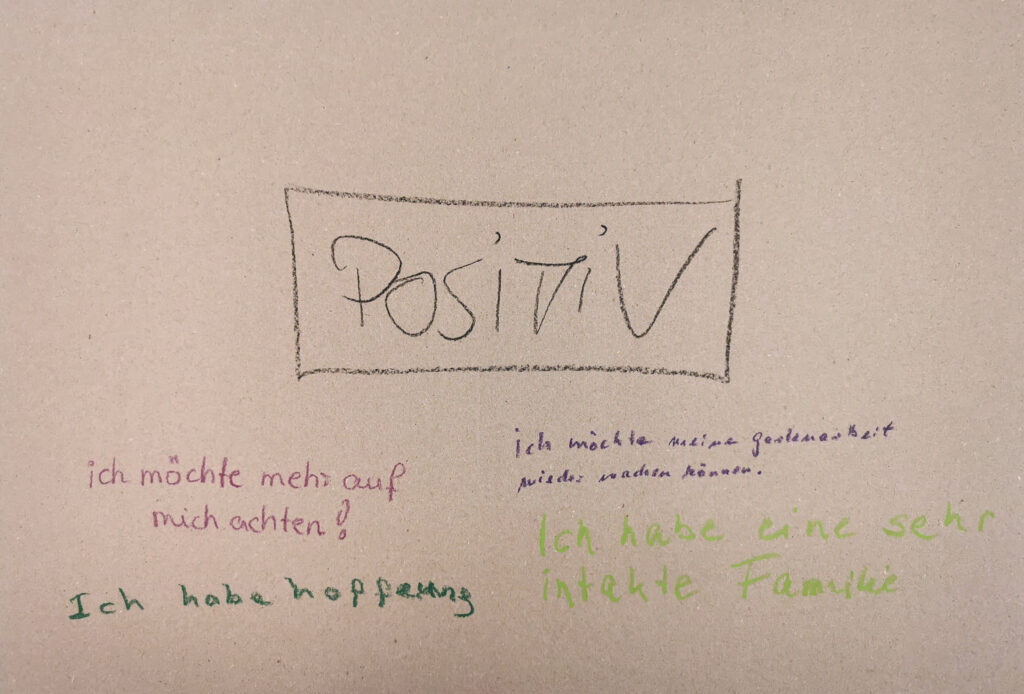 POSiTiV
ich möchte mehr auf
mich achten!
Ich habe hoffnung
ich möchte meine gartenarbeit
wieder machen können.
Ich habe eine sehr
intakte Familie